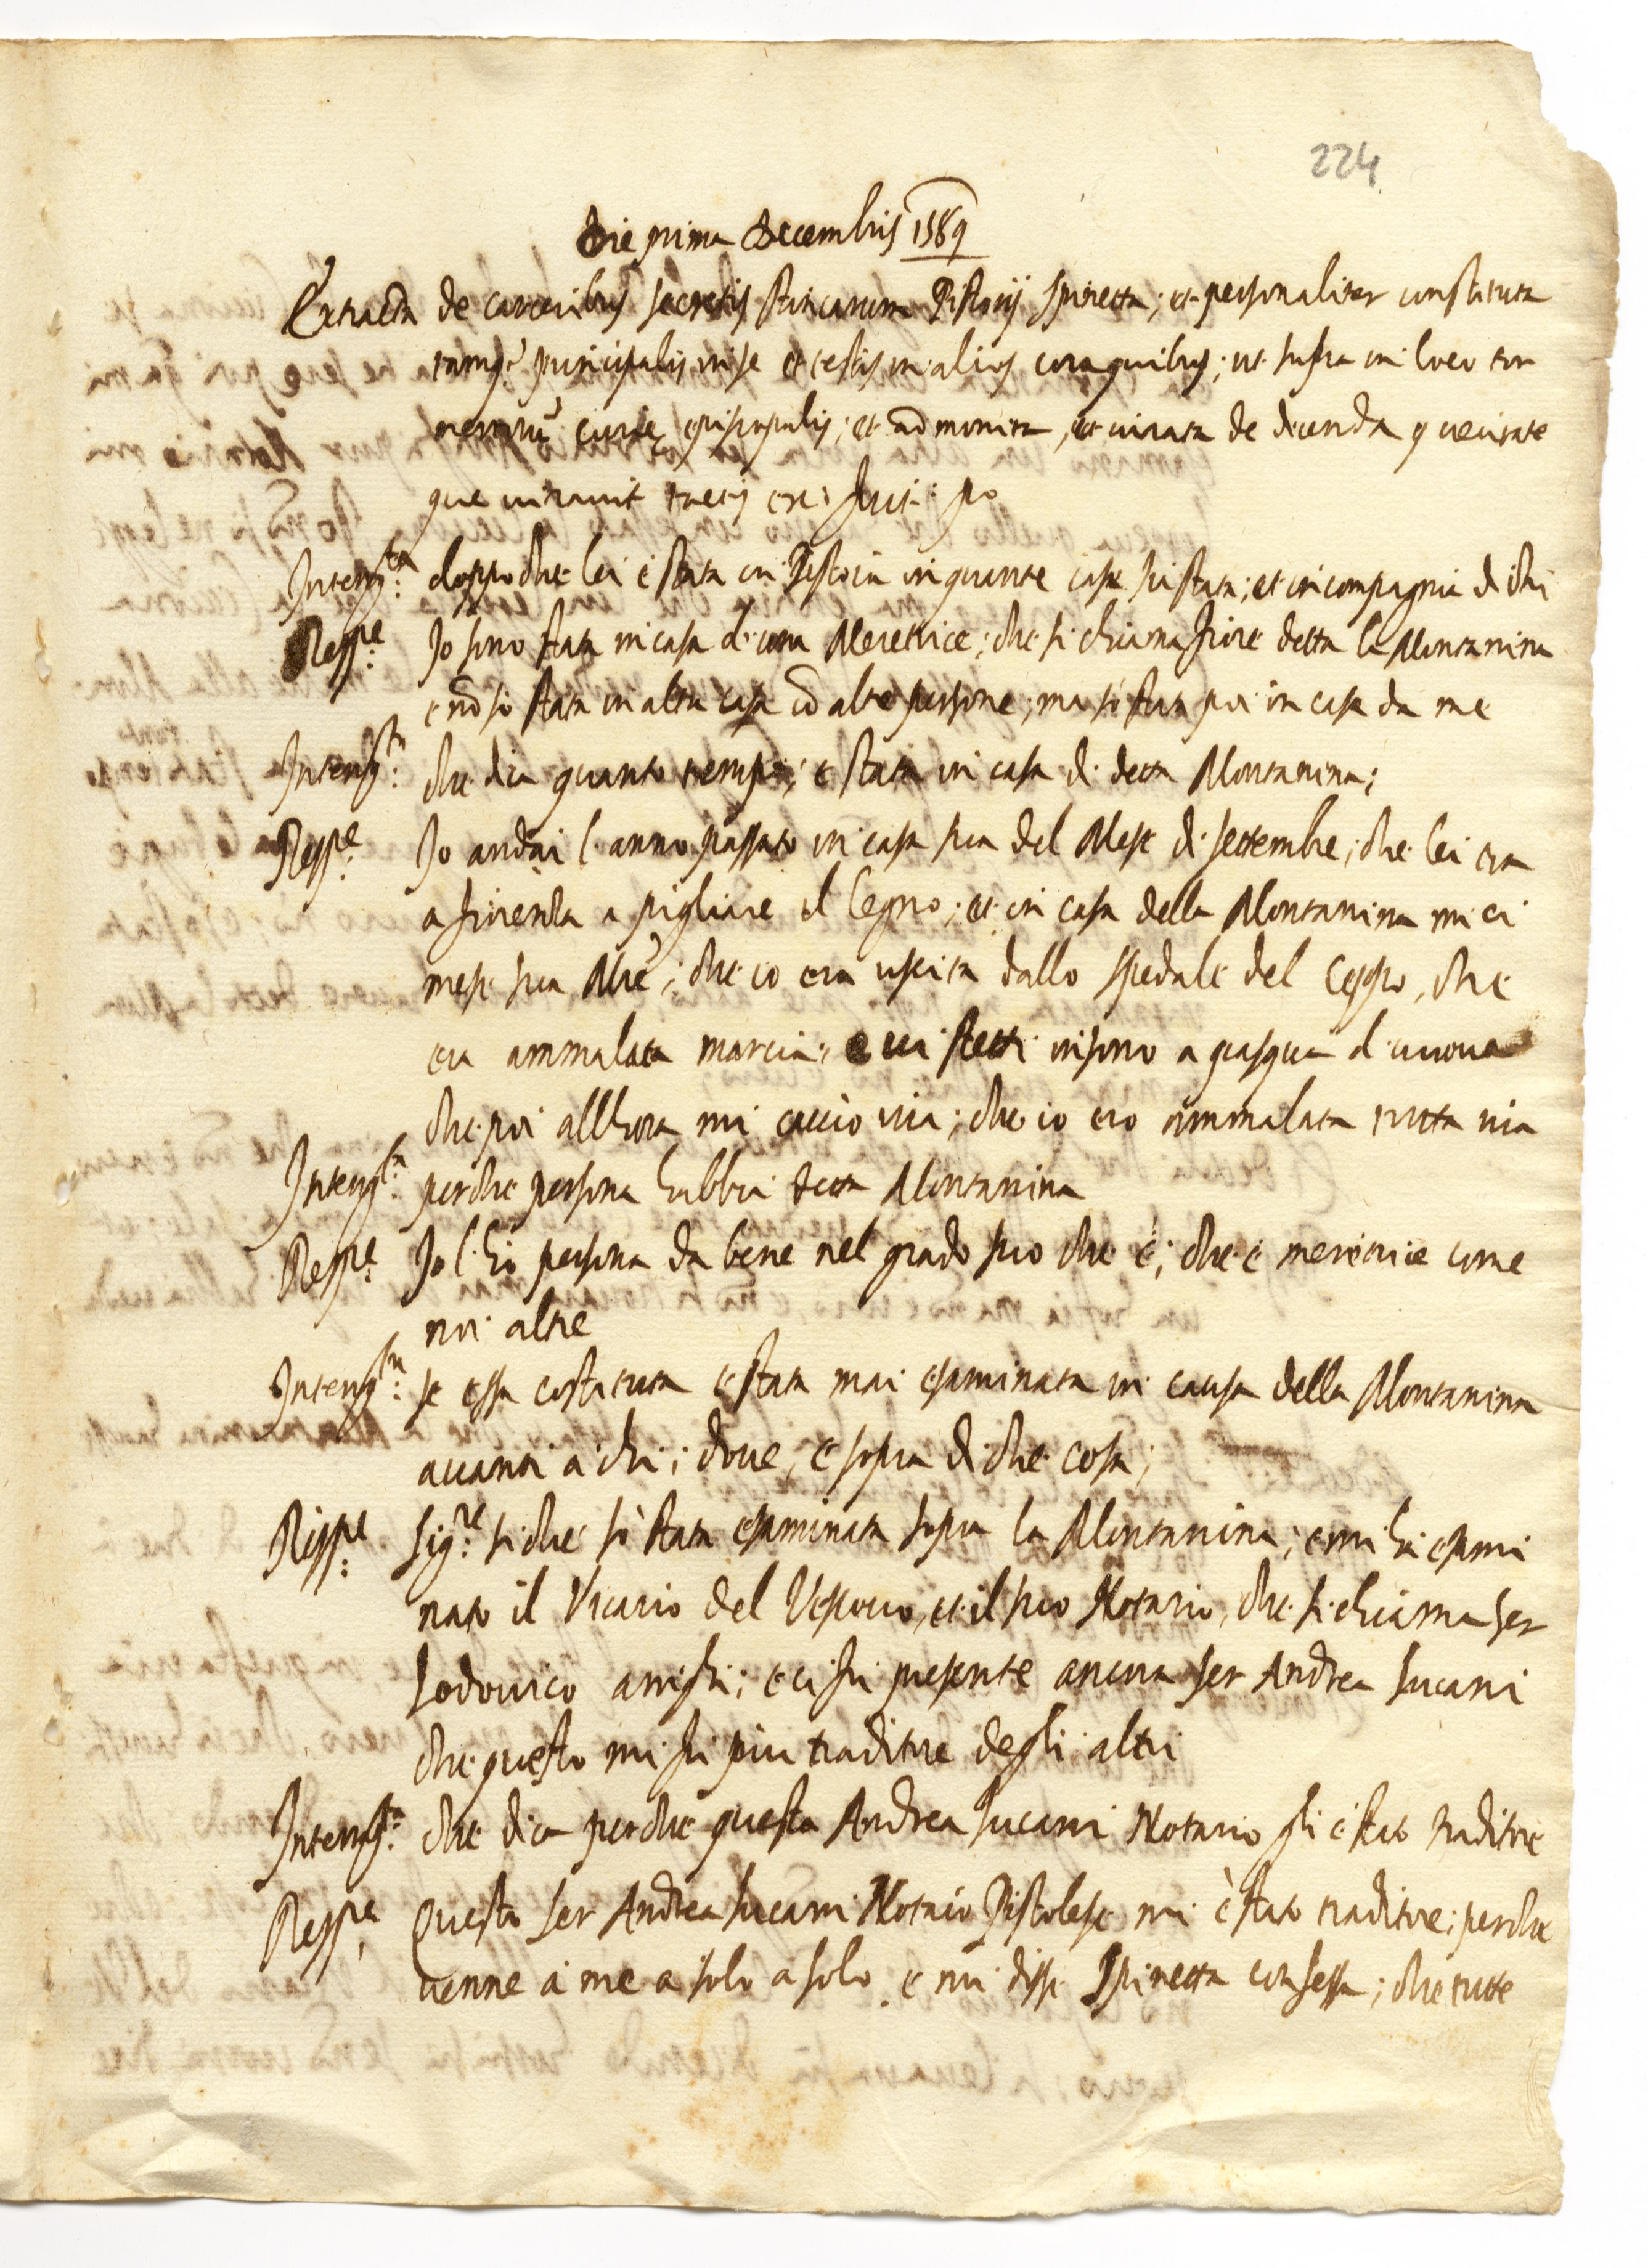 224
Die prima Decembris 1589
Extracta de carceribus secretis stincarum Pistorij Spinetta; et personaliter constituta
tamq. principalis in se et testis in alios coram quibus; ut supra in loco tor
mentorũ curie episcopalis; et admonita, et iurata de dicenda veritate
que iuravit tactis
Interrog.ta doppo che lei è stata in Pistoia in quante case sia stata; et in compagnia di chi
Resp.e Io sono stata in casa d'una Meretrice; che si chiama Fiore detta la Montanina
e nõ so stata in altra casa cõ altre persone; ma sò stata poi in casa da me
Interrog.ta che dica quanto tempo; è stata in casa di detta Montanina;
Resp.e Io andai l'anno passato in casa sua del Mese di settembre; che lei era
a Firenza a pigliare il legno; et in casa della Montanina mi ci
mese sua M̃re; che io era uscita dallo spedale del Ceppo, che
era ammalata marcia; e vi stetti insino a pasqua d'uuova
che poi allhora mi cacciò via; che io ero ammalata tutta via
Interrog.ta perche persona habbia detta Montanina
Resp.e Io l'hò persona da bene nel grado suo che è; che è meretrice come
noi altre
Interrog.ta se essa costituta è stata mai esaminata in causa della Montanina
avanti à chi; dove, e sopra di che cosa;
Resp.e Sig.re si che sò stata esaminata sopra la Montanina; e mi hà esami
nato il Vicario del Vescovo, et il suo Notario, che si chiama Ser
Lodovico arrighi; e ci fu presente ancora Ser Andrea Lucani
che questo mi fu piu traditore degli altri
Interrog.ta che dica perche questo Andrea Lucani Notario gli è stato traditore
Resp.e Questo Ser Andrea Lucani Notaio Pistolese mi è stato traditore; perche
venne à me a solo a solo e mi disse Spinetta confessa; che tutte